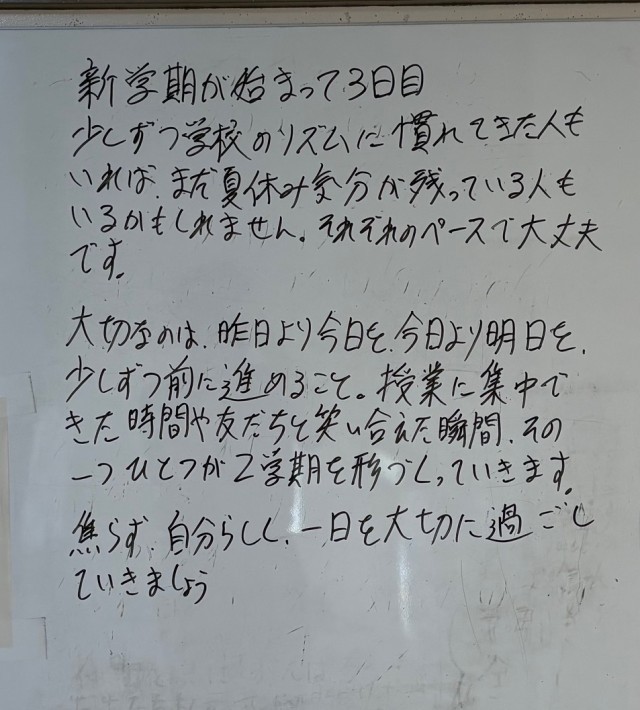 新学期が始まって3日目
少しずつ学校のリズムに慣れてきた人も
いれば、まだ夏休み気分が残っている人も
いるかもしれません。それぞれのペースで大丈夫
です。
大切なのは、昨日より今日を、今日より明日を、
少しずつ前に進めること。授業に集中で
きた時間や友だちと笑い合えた瞬間、その
一つひとつが2学期を形づくっていきます。
焦らず、自分らしく、一日を大切に過ごし
ていきましょう